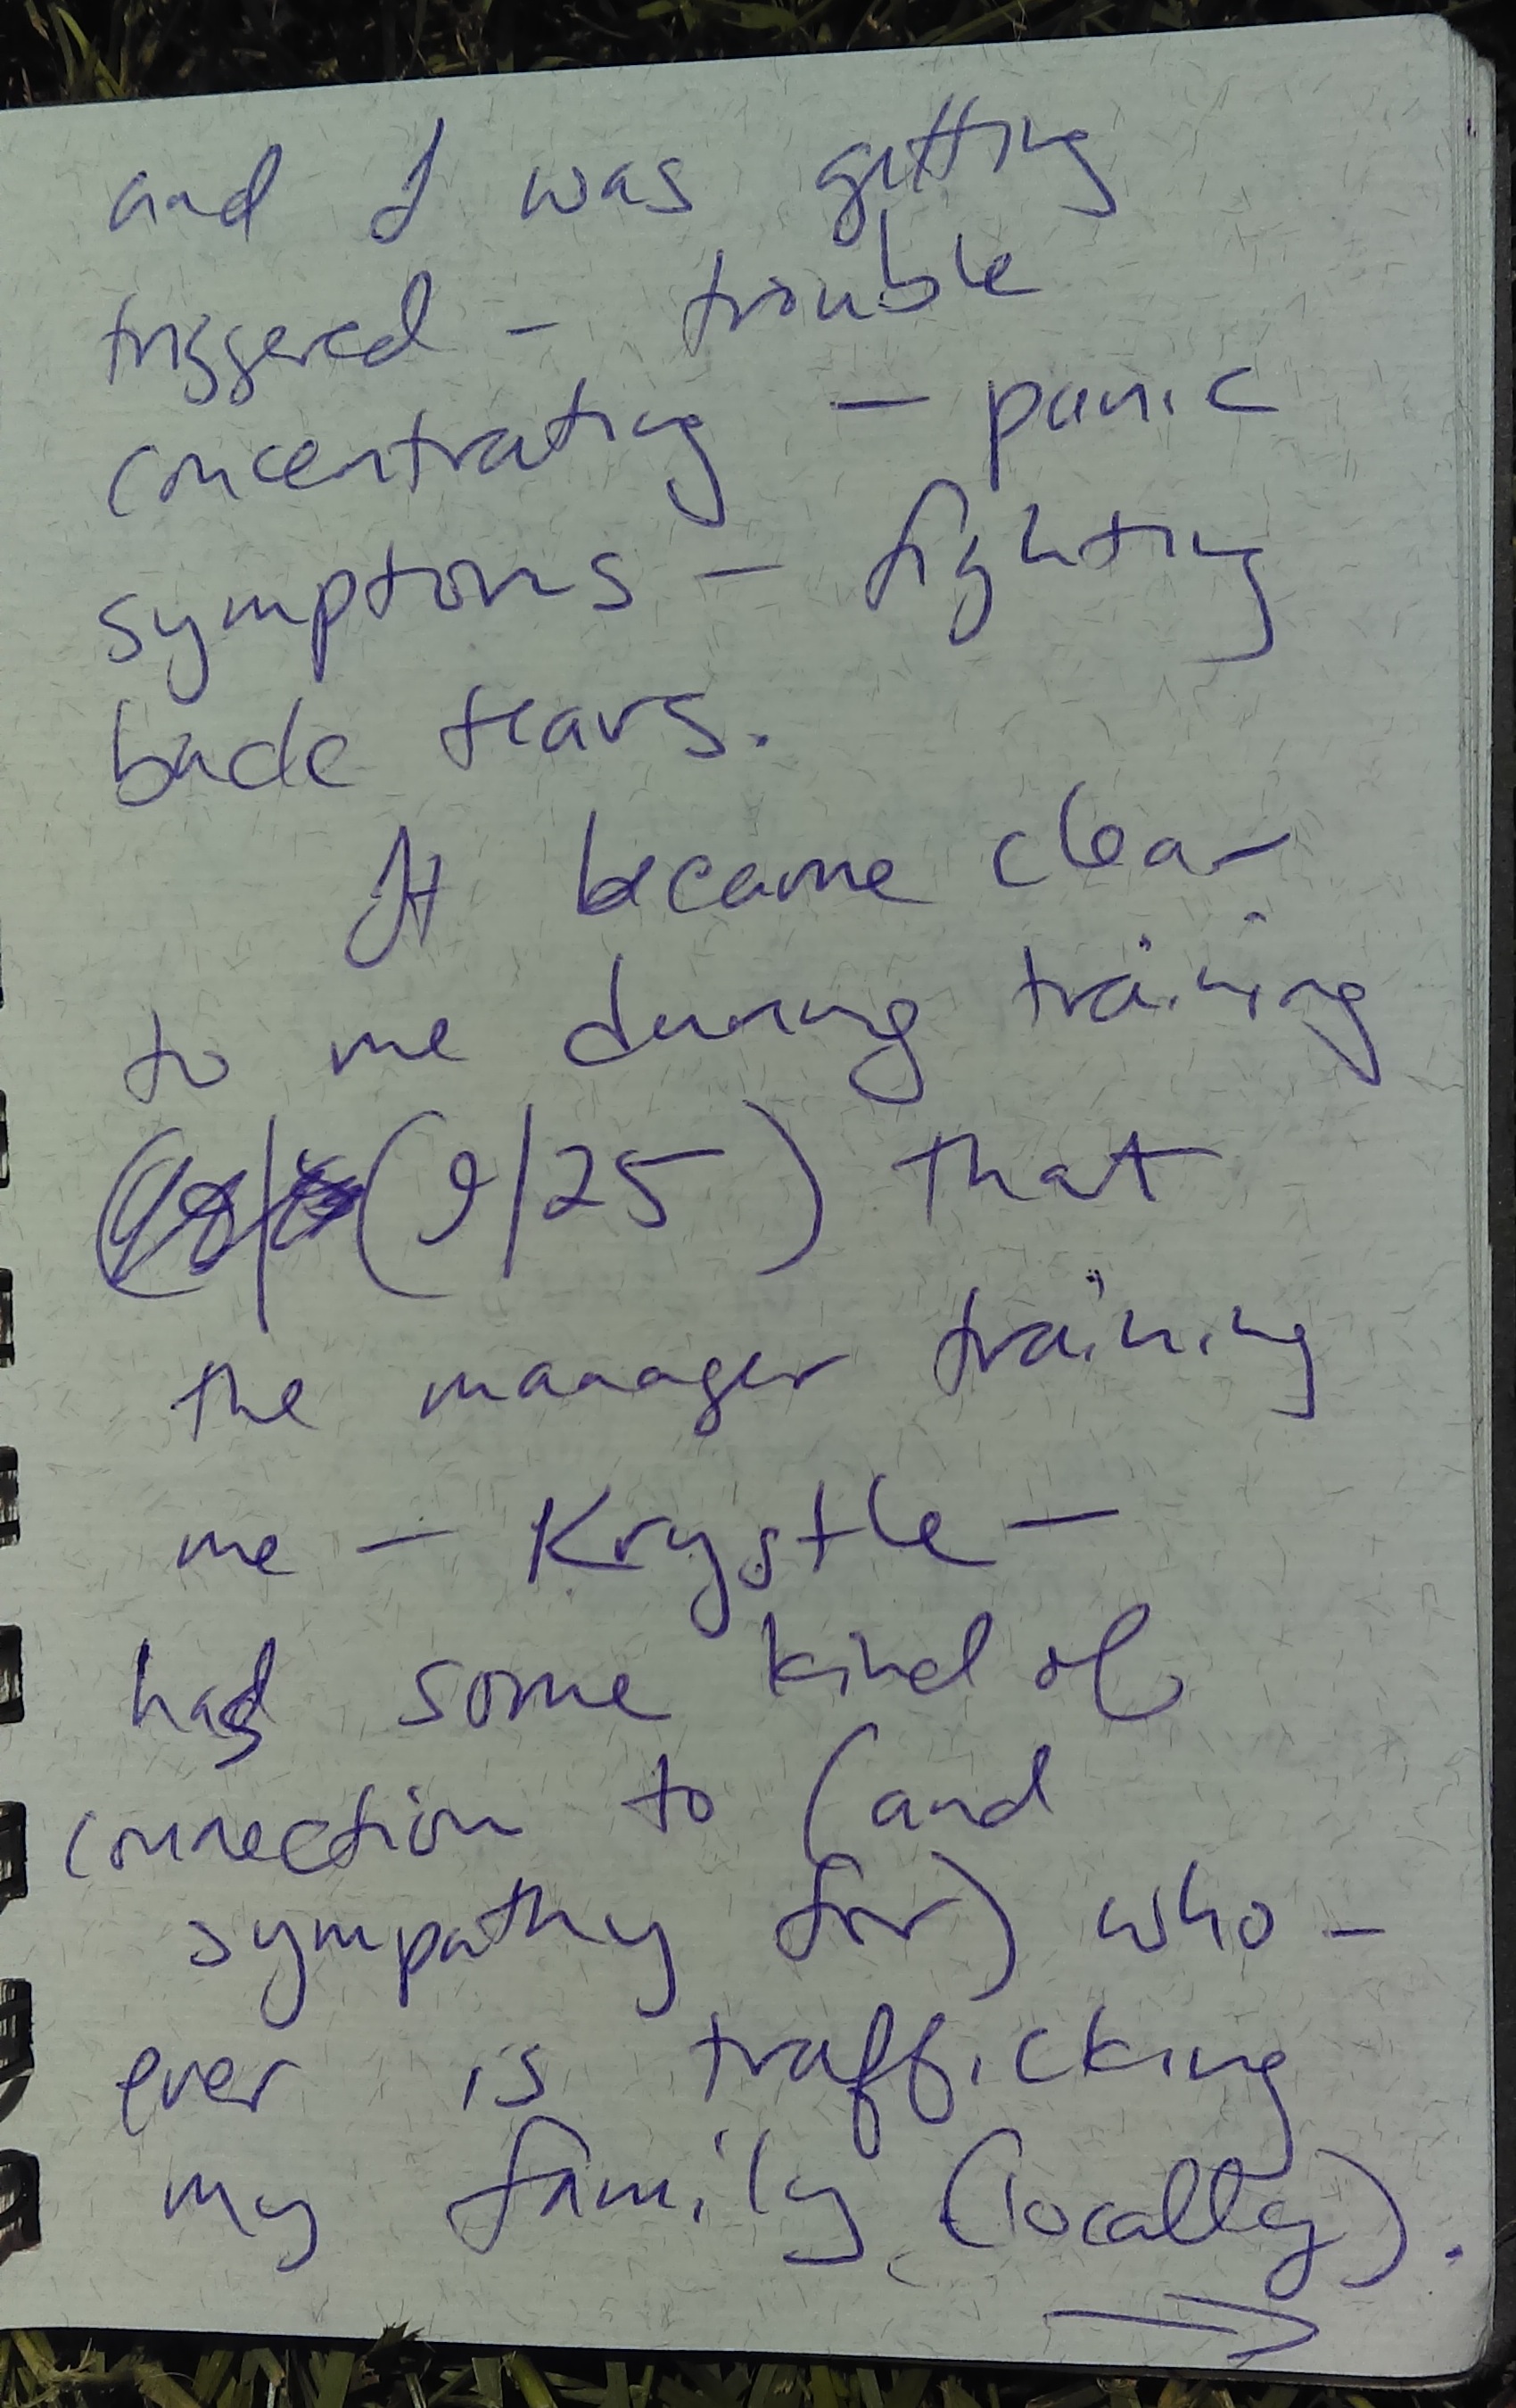 and I was getting
triggered - trouble
concentrating - panic
symptoms - fighting
back tears.
It became clear
to me during training
(9/25) that
the manager training
me - Krystle -
has some kind of
connection to (and
sympathy for) who-
ever is trafficking
my family (locally).
→